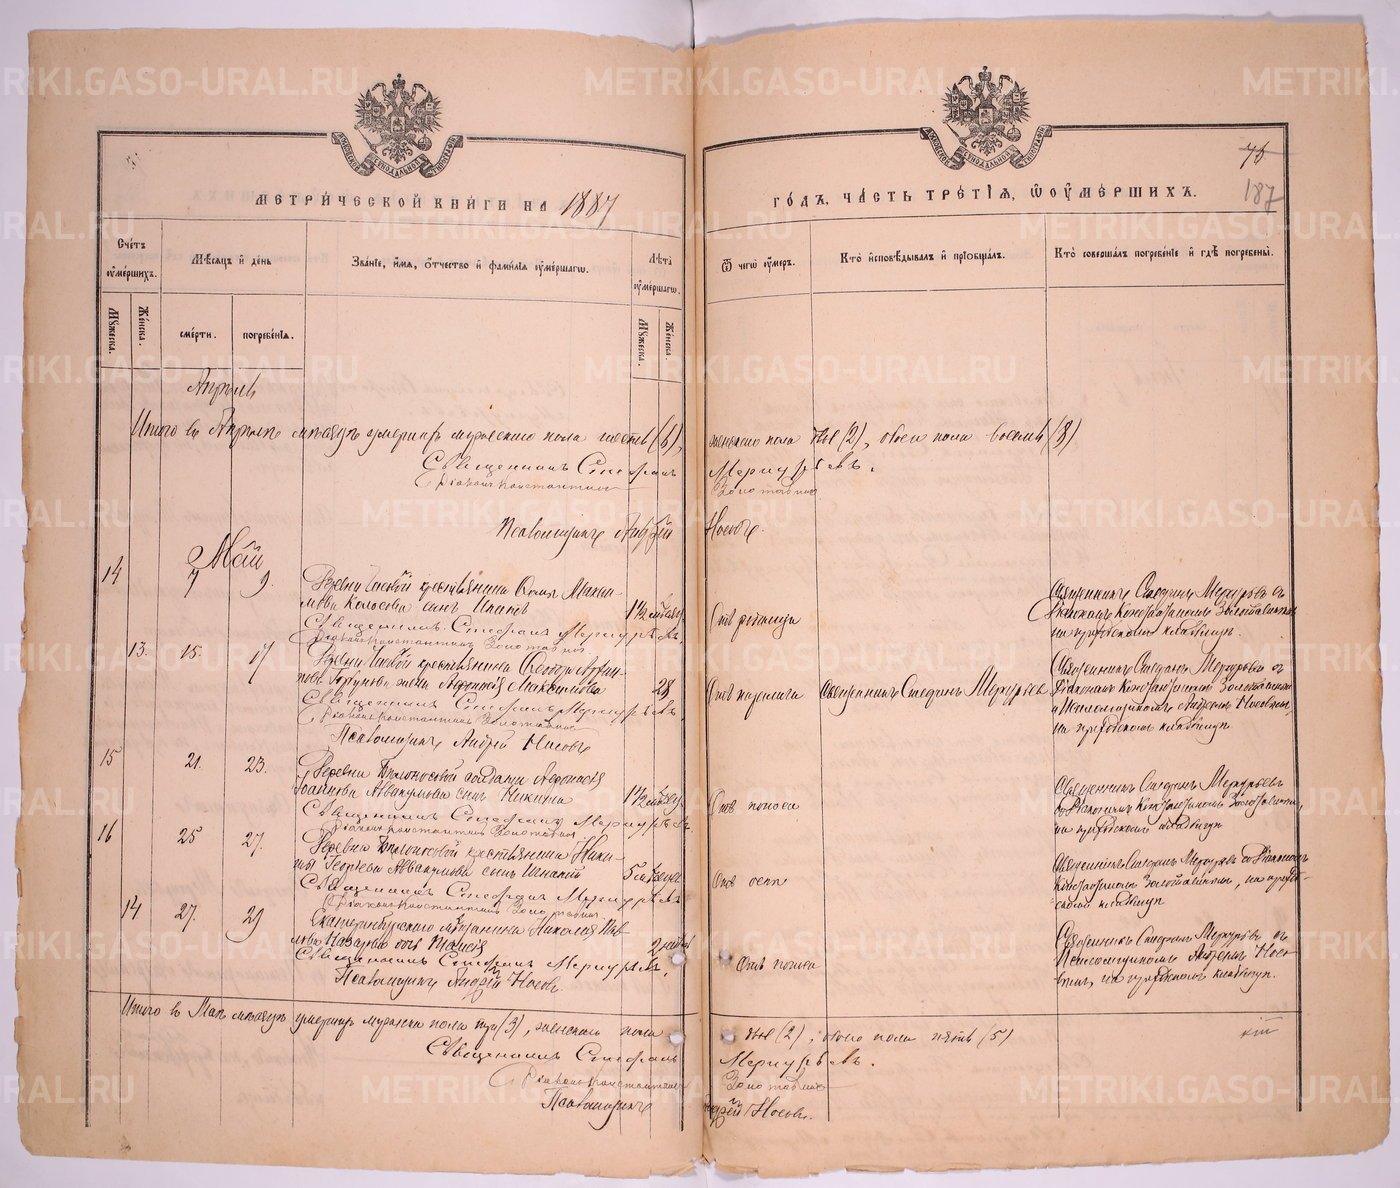 METRIKI.GASO-URAL.RU
МЕТРИ́ЧЕСКОЙ КНИ́ГИ НА 1887
ГО́ДЪ, ЧА́СТЬ ТРЕ́ТІѦ, Ѡ ОУМЕ́РШИХЪ.
75
187
Сче́тъ оумéршихъ.
Мѣ́сяцъ и де́нь
Зва́ніе, и́мя, о́тчество и фами́лія оуме́ршагѡ.
Лѣ́та оуме́ршагѡ.
Ѿ чегѡ̀ оу́меръ.
Кто̀ исповѣ́дывалъ и пріобща́лъ.
Кто̀ соверша́лъ погребе́ніе и гдѣ̀ погребены̀.
Му́жеска.
Же́нска.
сме́рти.
погребе́нія.
Му́жеска.
Же́нска.
Апрѣль
Итого въ Апрѣлѣ мѣсяцѣ умерших мужескаго пола шесть (6), женскаго пола двѣ (2), обоего пола восемь (8)
Священникъ Стефанъ Меркурьевъ.
Діаконъ Константинъ Золотавинъ
Псаломщикъ Андрей Носовъ.
Май
14
7
9.
крестьянина
Колосова сынъ
1½ мѣсяц
Священникъ Стефанъ Меркурьевъ
Діаконъ Константинъ Золотавинъ
Отъ родимца
Священникъ Стефанъ Меркурьевъ с
Діакономъ Константиномъ Золотавинымъ
на приходскомъ кладбищѣ.
13.
15.
17
крестьянина
жена
28
Священникъ Стефанъ Меркурьевъ.
Діаконъ Константинъ Золотавинъ
Псаломщикъ Андрей Носовъ
Священникъ Стефанъ Меркурьевъ
Священникъ Стефанъ Меркурьевъ с
Діакономъ Константиномъ Золотавинымъ
и Псаломщикомъ Андреемъ Носовымъ,
на приходскомъ кладбищѣ
15
21.
23.
Деревни солдатки
Аввакумова сынъ Никита
1½ мѣсяц
Священникъ Стефанъ Меркурьевъ
Діаконъ Константинъ Золотавинъ
Отъ поноса
Священникъ Стефанъ Меркурьевъ
съ Діакономъ Константиномъ Золотавинымъ,
на приходскомъ кладбищѣ
16
25
27.
Деревни крестьянина Ники-
ты Георгіева Аввакумова сынъ Игнатій
5 мѣсяцев
Священникъ Стефанъ Меркурьевъ
Діаконъ Константинъ Золотавинъ.
Отъ оспы
Священникъ Стефанъ Меркурьевъ съ Діакономъ
Константиномъ Золотавинымъ, на приход-
скомъ кладбищѣ
14
27.
29
Екатеринбургскаго мѣщанина Николая Пав-
лова Назарова дочь
Священникъ Стефанъ Меркурьевъ.
Псаломщикъ Андрей Носовъ.
Отъ поноса
Священникъ Стефанъ Меркурьевъ съ
Псаломщикомъ Андреемъ Носо-
вымъ, на приходскомъ кладбищѣ.
Итого въ Маѣ мѣсяцѣ умерших мужска пола три (3), женскаго пола двѣ (2), обоего пола пять (5)
Священникъ Стефанъ Меркурьевъ.
Діаконъ Константинъ Золотавинъ
Псаломщикъ Андрей Носовъ.